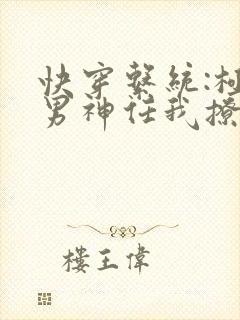 快穿繫統:
男神任我撩
樓王偉